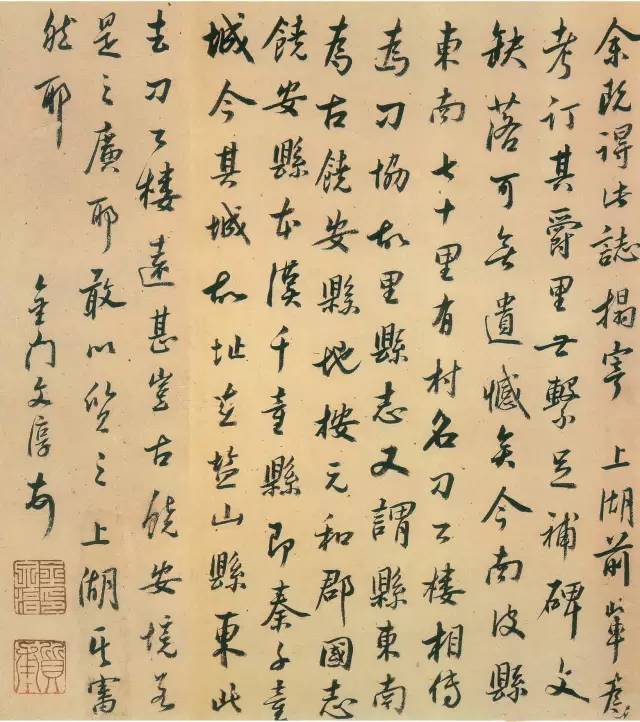 余既得此誌搨寄 上湖前輩
考訂其爵里世繫足補碑文
缺落可無遺憾矣今南皮縣
東南七十里有村名刀公樓相傳
為刀協故里縣志又謂縣東南
為古饒安縣地按元和郡國志
饒安縣本漢千童縣即秦千童
城今其城故址在鹽山縣東此
去刀公樓遠甚豈古饒安境若
是之廣耶敢以質之 上湖其審
然耶
金門文淳